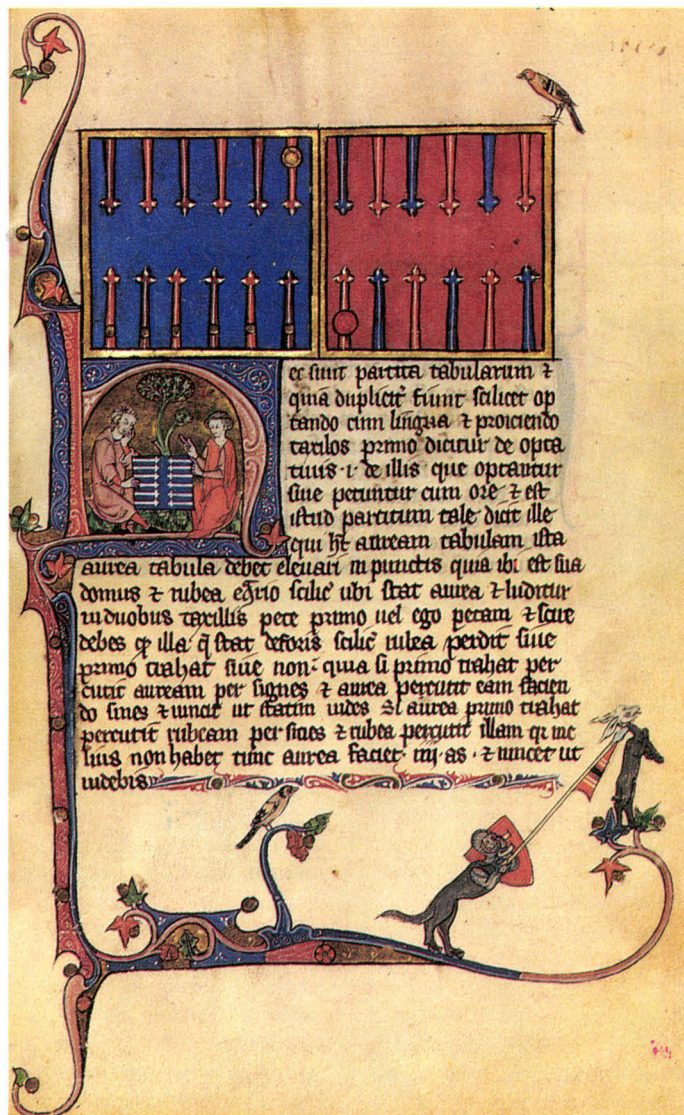 ec sunt partita tabularum ⁊
quia duplicit' fiunt scilicet op
tando cum lingua ⁊ proiciendo
taxilos primo dicitur de opta
tiuis ·i· de illis que optantur
siue petuntur cum ore ⁊ est
istud partitum tale dicit ille
qui ht auream tabulam ista
aurea tabula debet eleuari in punctis quia ibi est sua
domus ⁊ rubea scilic' ubi stat aurea ⁊ luditur
in duobus taxillis pete primo uel ego petam ⁊ scire
debes illa stat deforis scilic' rubea perdit siue
primo trahat siue non quia si primo trahat per
cutit auream per signes ⁊ aurea percutit eam facien
do sines ⁊ uincit ut statim uides Si aurea primo trahat
percutit rubeam per sines ⁊ rubea percutit illam me
lius non habet tunc aurea faciet as ⁊ uincet ut
uidebis